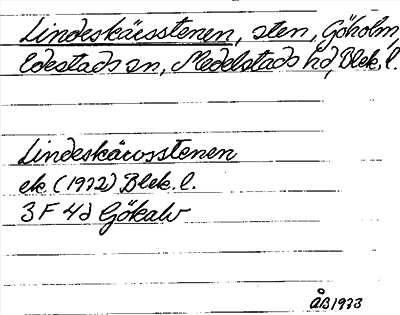 Lindeskärsstenen, sten, Göholm,
Edestads sn, Medelstads hd, Blek. l.
Lindeskärvsstenen
ek. (1972) Blek. l.
3 F 4d Gökalv
ÅB 1973